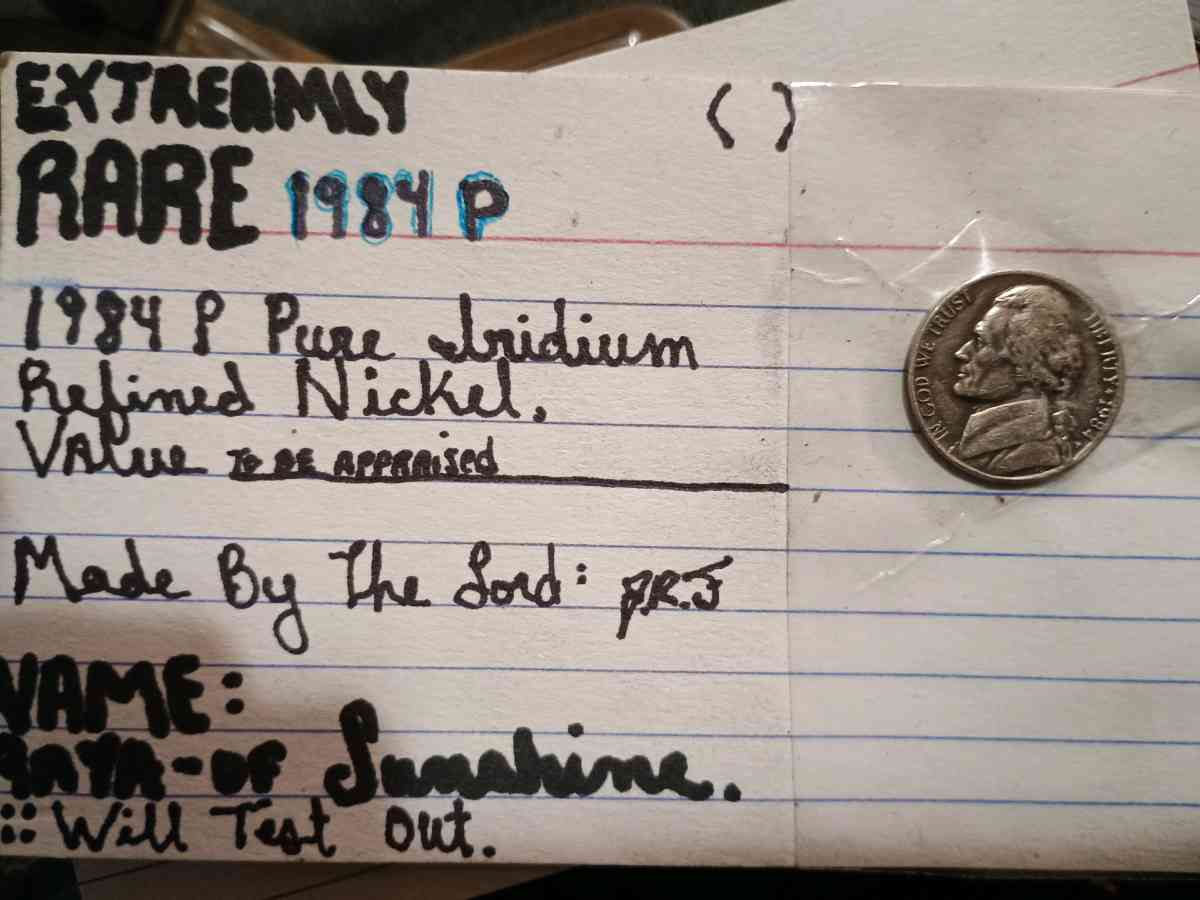 EXTREAMLY ( )
RARE 1984 P
1984 P Pure Iridium
Refined Nickel.
Value TO BE APPRAISED
Made By The Lord: J.R.J
NAME:
RAYA-OF Sunshine.
:: Will Test Out.
IN GOD WE TRUST
LIBERTY 1984 P